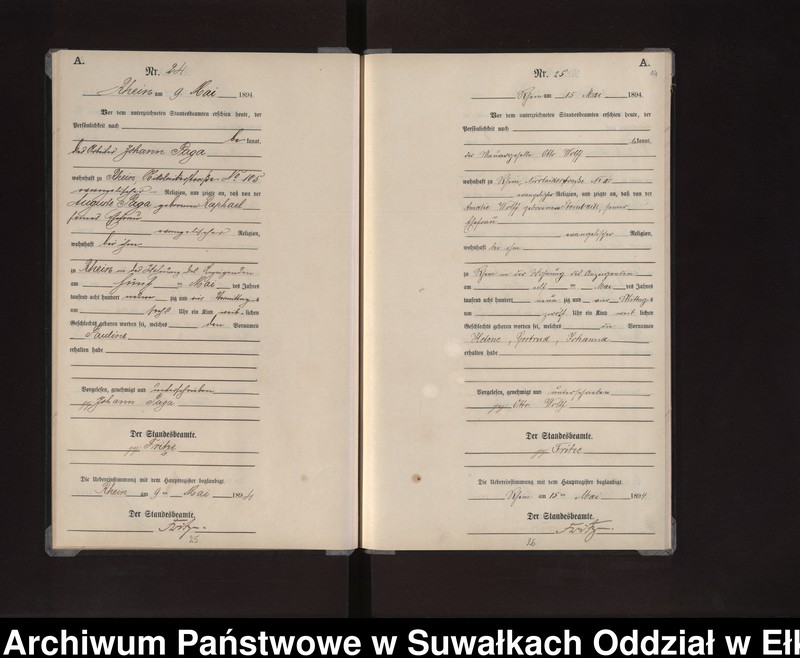 A.
Nr. 24
Rhein am 9 Mai 1894.
Vor dem unterzeichneten Standesbeamten erschien heute, der
Persönlichkeit nach
be kannt,
der Arbeiter Johann Saga
wohnhaft zu Rhein, No 105
evangelischer Religion, und zeigte an, daß von der
Auguste Saga geborenen Raphael
seiner Ehefrau
evangelischer Religion,
wohnhaft bei ihm
zu Rhein in der Wohnung des Anzeigenden
am fünf ten Mai des Jahres
tausend acht hundert neun zig und vier Vormittag s
um Uhr ein Kind weib lichen
Geschlechts geboren worden sei, welches den Vornamen
Pauline
erhalten habe
Vorgelesen, genehmigt und unterschrieben
gez. Johann Saga
Der Standesbeamte.
gez. Fritze
Die Uebereinstimmung mit dem Hauptregister beglaubigt.
Rhein am 9ten Mai 1894
Der Standesbeamte.
Fritze.
25
A.
Nr. 25
Rhein am 15 Mai 1894.
Vor dem unterzeichneten Standesbeamten erschien heute, der
Persönlichkeit nach
bekannt,
der Maurergeselle Otto Wolff
wohnhaft zu Rhein,
evangelischer Religion, und zeigte an, daß von der
Amalie Wolff geborenen seiner
Ehefrau
evangelischer Religion,
wohnhaft bei ihm
zu Rhein in der Wohnung des Anzeigenden
am elf ten Mai des Jahres
tausend acht hundert neun zig und vier Mittag s
um zwölf Uhr ein Kind weib lichen
Geschlechts geboren worden sei, welches die Vornamen
Helene, Gertrud, Johanna
erhalten habe
Vorgelesen, genehmigt und unterschrieben
gez. Otto Wolff
Der Standesbeamte.
gez. Fritze
Die Uebereinstimmung mit dem Hauptregister beglaubigt.
Rhein am 15ten Mai 1894
Der Standesbeamte.
Fritze.
26
Archiwum Państwowe w Suwałkach Oddział w Ełk